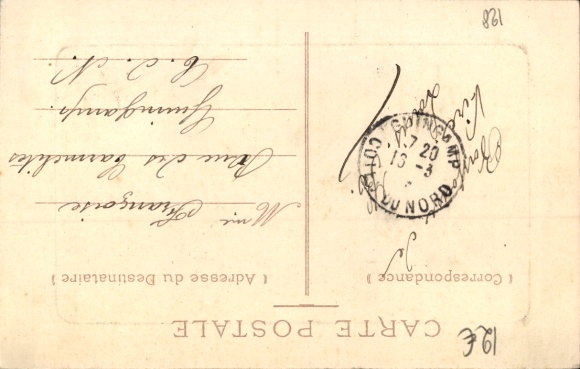 12€
CARTE POSTALE
( Correspondance )
( Adresse du Destinataire )
Mme Françoise
Rue des Carmelites
Guingamp.
C. d. N.
GUINGAMP
17 20
16 - 3
COTES DU NORD
128